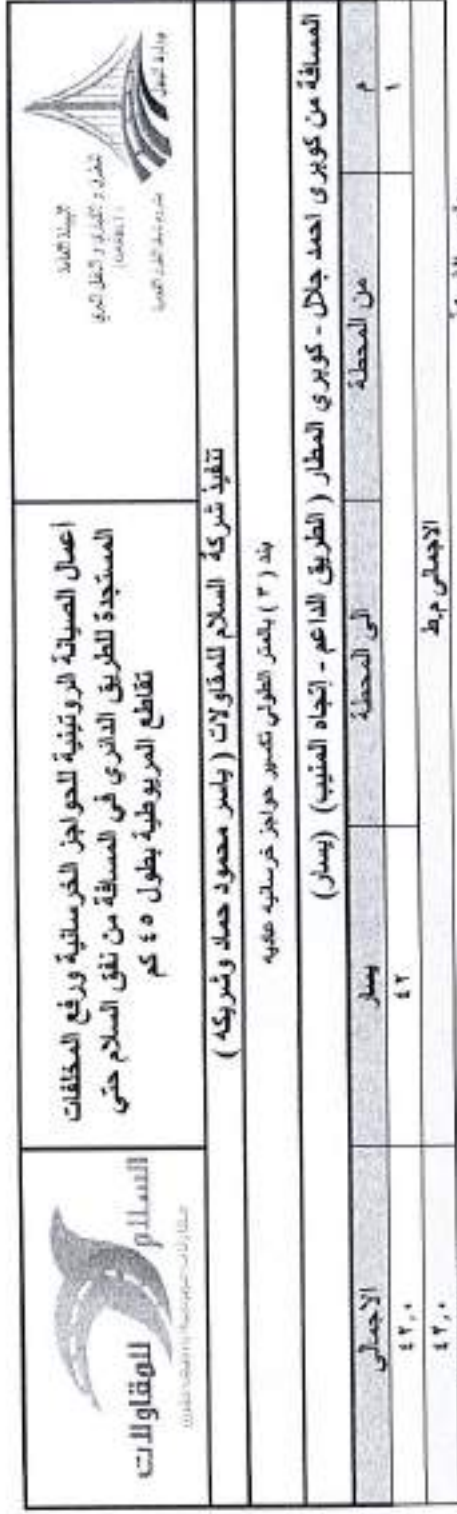 وزارة النقل
الهيئة العامة
للطرق و الكباري و النقل البري
أعمال الصيانة الروتينية للحواجز الخرسانية ورفع المخلفات
المستجدة للطريق الدائري في المسافة من نفق السلام حتي
تقاطع المريوطية بطول ٤٥ كم
السلام
للمقاولات
تنفيذ شركة السلام للمقاولات ( ياسر محمود حماد وشريكه )
بند ( ٣ ) بالمتر الطولي تكسير حواجز خرسانيه عاديه
المسافة من كوبري احمد جلال - كوبري المطار ( الطريق الداعم - إتجاه المنيب) (يسار)
م من المحطة الى المحطة يسار الاجمالي
١ ٤٢ ٤٢,٠
الاجمالى م.ط ٤٢,٠